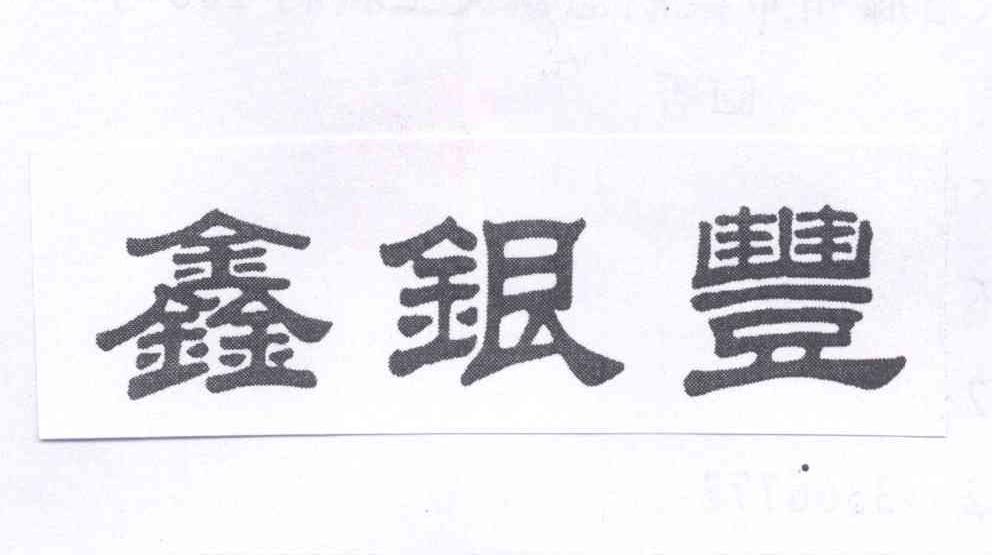 鑫銀豐